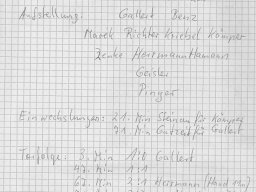 Aufstellung: Gallert Benz
Marek Richter Kriebel Kämper
Zenke Herrmann Hamann
Geisler
Pinger
Einwechslungen: 21. Min Steinen für Kämper
71. Min Gutzeit für Gallert
Torfolge: 3. Min 1:0 Gallert
47. Min 1:1
67. Min 2:1 Herrmann (Hand 11m)